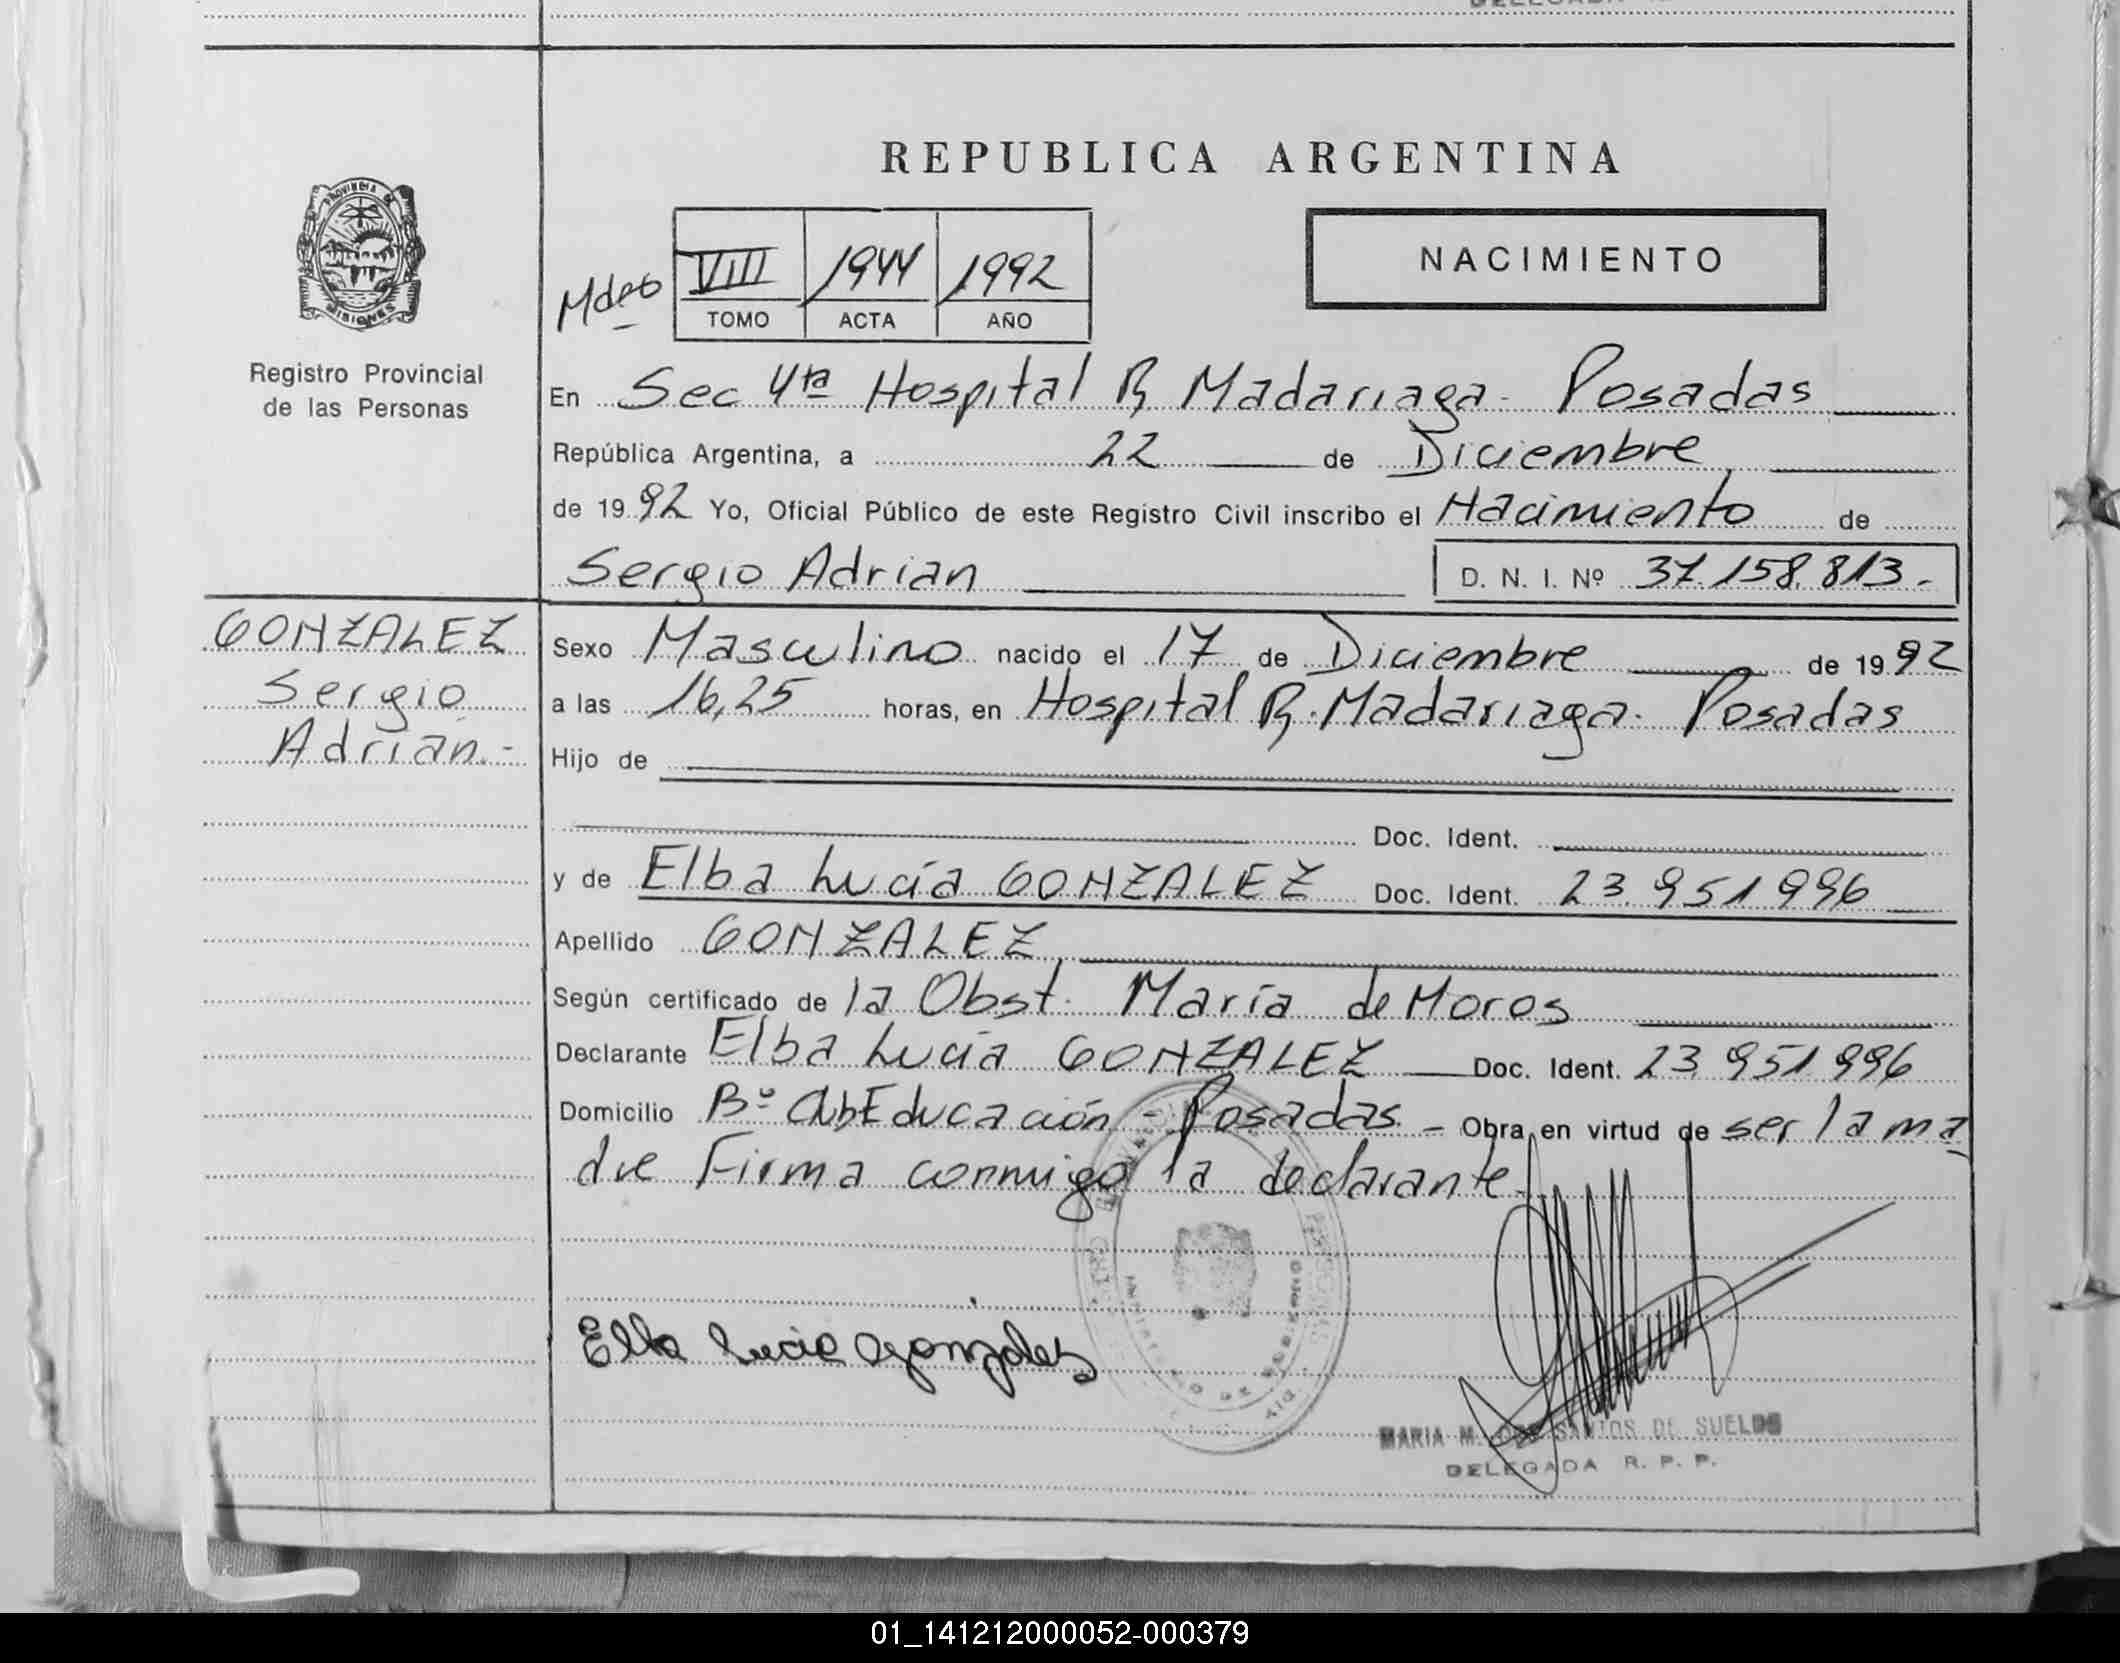 REPUBLICA ARGENTINA
PROVINCIA DE
MISIONES
Registro Provincial
de las Personas
VIII 1944 1992
TOMO ACTA AÑO
NACIMIENTO
En Sec 4ta Hospital R Madariaga - Posadas
República Argentina, a 22 de Diciembre
de 1992 Yo, Oficial Público de este Registro Civil inscribo el Nacimiento de
Sergio Adrian D. N. I. Nº 37.158.813.-
GONZALEZ
Sergio
Adrian.-
Sexo Masculino nacido el 17 de Diciembre de 1992
a las 16,25 horas, en Hospital R. Madariaga - Posadas
Hijo de
Doc. Ident.
y de Elba Lucía GONZALEZ Doc. Ident. 23.951996
Apellido GONZALEZ
Según certificado de la Obst. María de Moros
Declarante Elba Lucía GONZALEZ Doc. Ident. 23.951996
Domicilio Bº Educación - Posadas - Obra en virtud de ser la ma
dre Firma conmigo la declarante.
Elba Lucia Gonzalez
MARIA M. DOS SANTOS DE SUELDO
DELEGADA R. P. P.
01_141212000052-000379